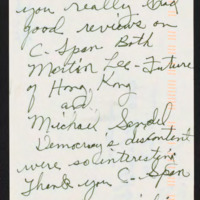 you really had
good reviews on
C-Span Both
Martin Lee-Future
of Hong Kong
and
Michael Sandel
Democracy's discontent
were so interesting
Thank you C-Span